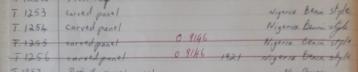 T 1253 carved panel Nigeria Benin style
T 1254 carved panel Nigeria Benin style
T 1255 carved panel O 9146 Nigeria Benin style
T 1256 carved panel O 9146 1921 Nigeria Benin style